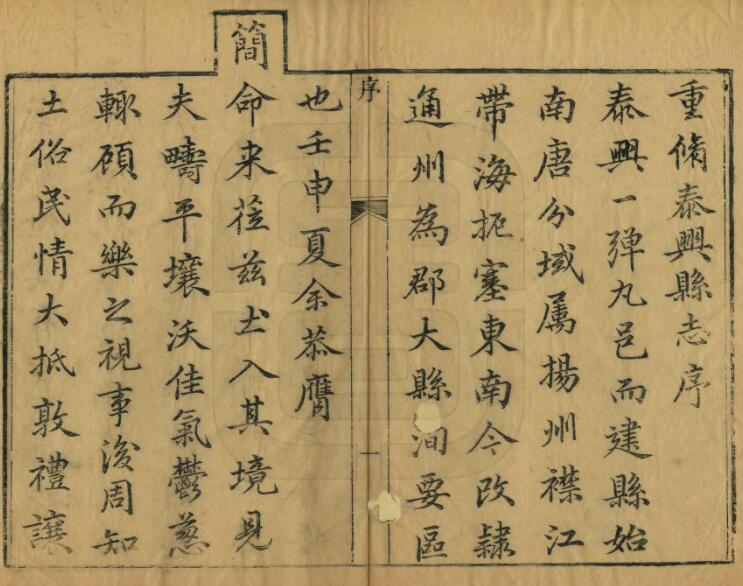 重脩泰興縣志序
泰興一弹丸邑而建縣始
南唐分域属揚州襟江
帶海扼塞東南今改隸
通州為郡大縣洵要區
序
一
也壬申夏余恭膺
簡
命来莅兹土入其境見
夫疇平壤沃佳氣鬱葱
輙顔而樂之視事後周知
土俗民情大抵敦禮讓